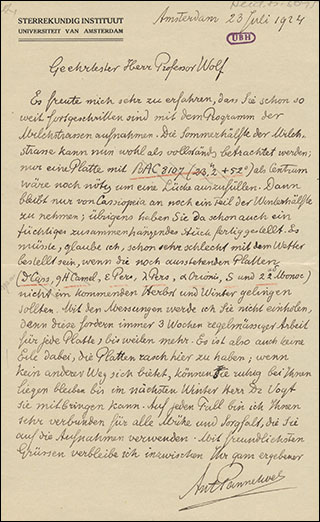 STERREKUNDIG INSTITUUT
UNIVERSITEIT VAN AMSTERDAM
Amsterdam 23 Juli 1924
UBH
Geehrtester Herr Professor Wolf
Es freute mich sehr zu erfahren, dass Sie schon so
weit fortgeschritten sind mit dem Programm der
Milchstrassenaufnahmen. Die Sommerhälfte der Milch-
strasse kann nun wohl als vollständig betrachtet werden;
nur eine Platte mit BAC 8107 (23,2 +52°) als Centrum
wäre noch nötig um eine Lücke auszufüllen. Dann
bleibt nur von Cassiopeia an noch ein Teil der Winterhälfte
zu nehmen; übrigens haben Sie da schon auch ein
tüchtiges zusammenhängendes Stück fertig gestellt. Es
müsste, glaube ich, schon sehr schlecht mit dem Wetter
bestellt sein, wenn die noch ausstehenden Platten
(Cass, 9H Camel, ε Pers, λ Pers, Orionis, S und 22 Monoc)
nicht im kommenden Herbst und Winter gelingen
sollten. Mit den Messungen werde ich Sie nicht einholen,
denn diese fordern immer 3 Wochen regelmässiger Arbeit
für jede Platte, bisweilen mehr. Es ist also auch keine
Eile dabei, die Platten rasch hier zu haben; wenn
kein anderer Weg sich bietet, können sie ruhig bei Ihnen
liegen bleiben bis im nächsten Winter Herr Dr Vogt
sie mitbringen kann. Auf jeden Fall bin ich Ihnen
sehr verbunden für alle Mühe und Sorgfalt, die Sie
auf die Aufnahmen verwenden. Mit freundlichsten
Grüssen verbleibe ich inzwischen Ihr ganz ergebener
Ant Pannekoek